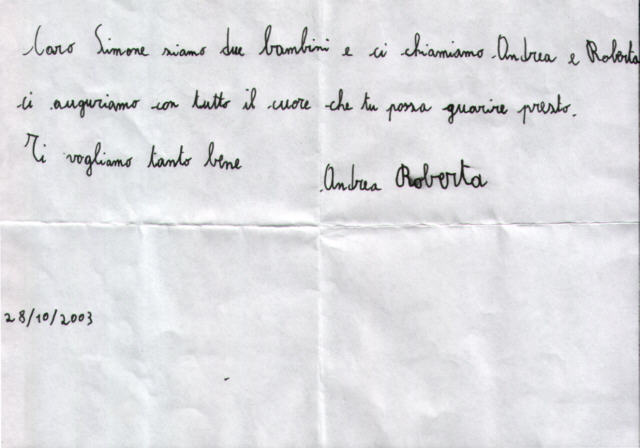 Caro Simone siamo due bambini e ci chiamiamo Andrea e Roberta
ci auguriamo con tutto il cuore che tu possa guarire presto.
Ti vogliamo tanto bene
Andrea Roberta
28/10/2003